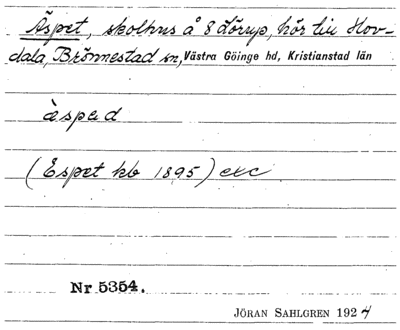 Äspet, skolhus å 8 Hörup, hör till Hov-
dala, Brönnestad sn, Västra Göinge hd, Kristianstad län
äspəd
(Espet kb 1895) etc
Nr 5354.
JÖRAN SAHLGREN 1924